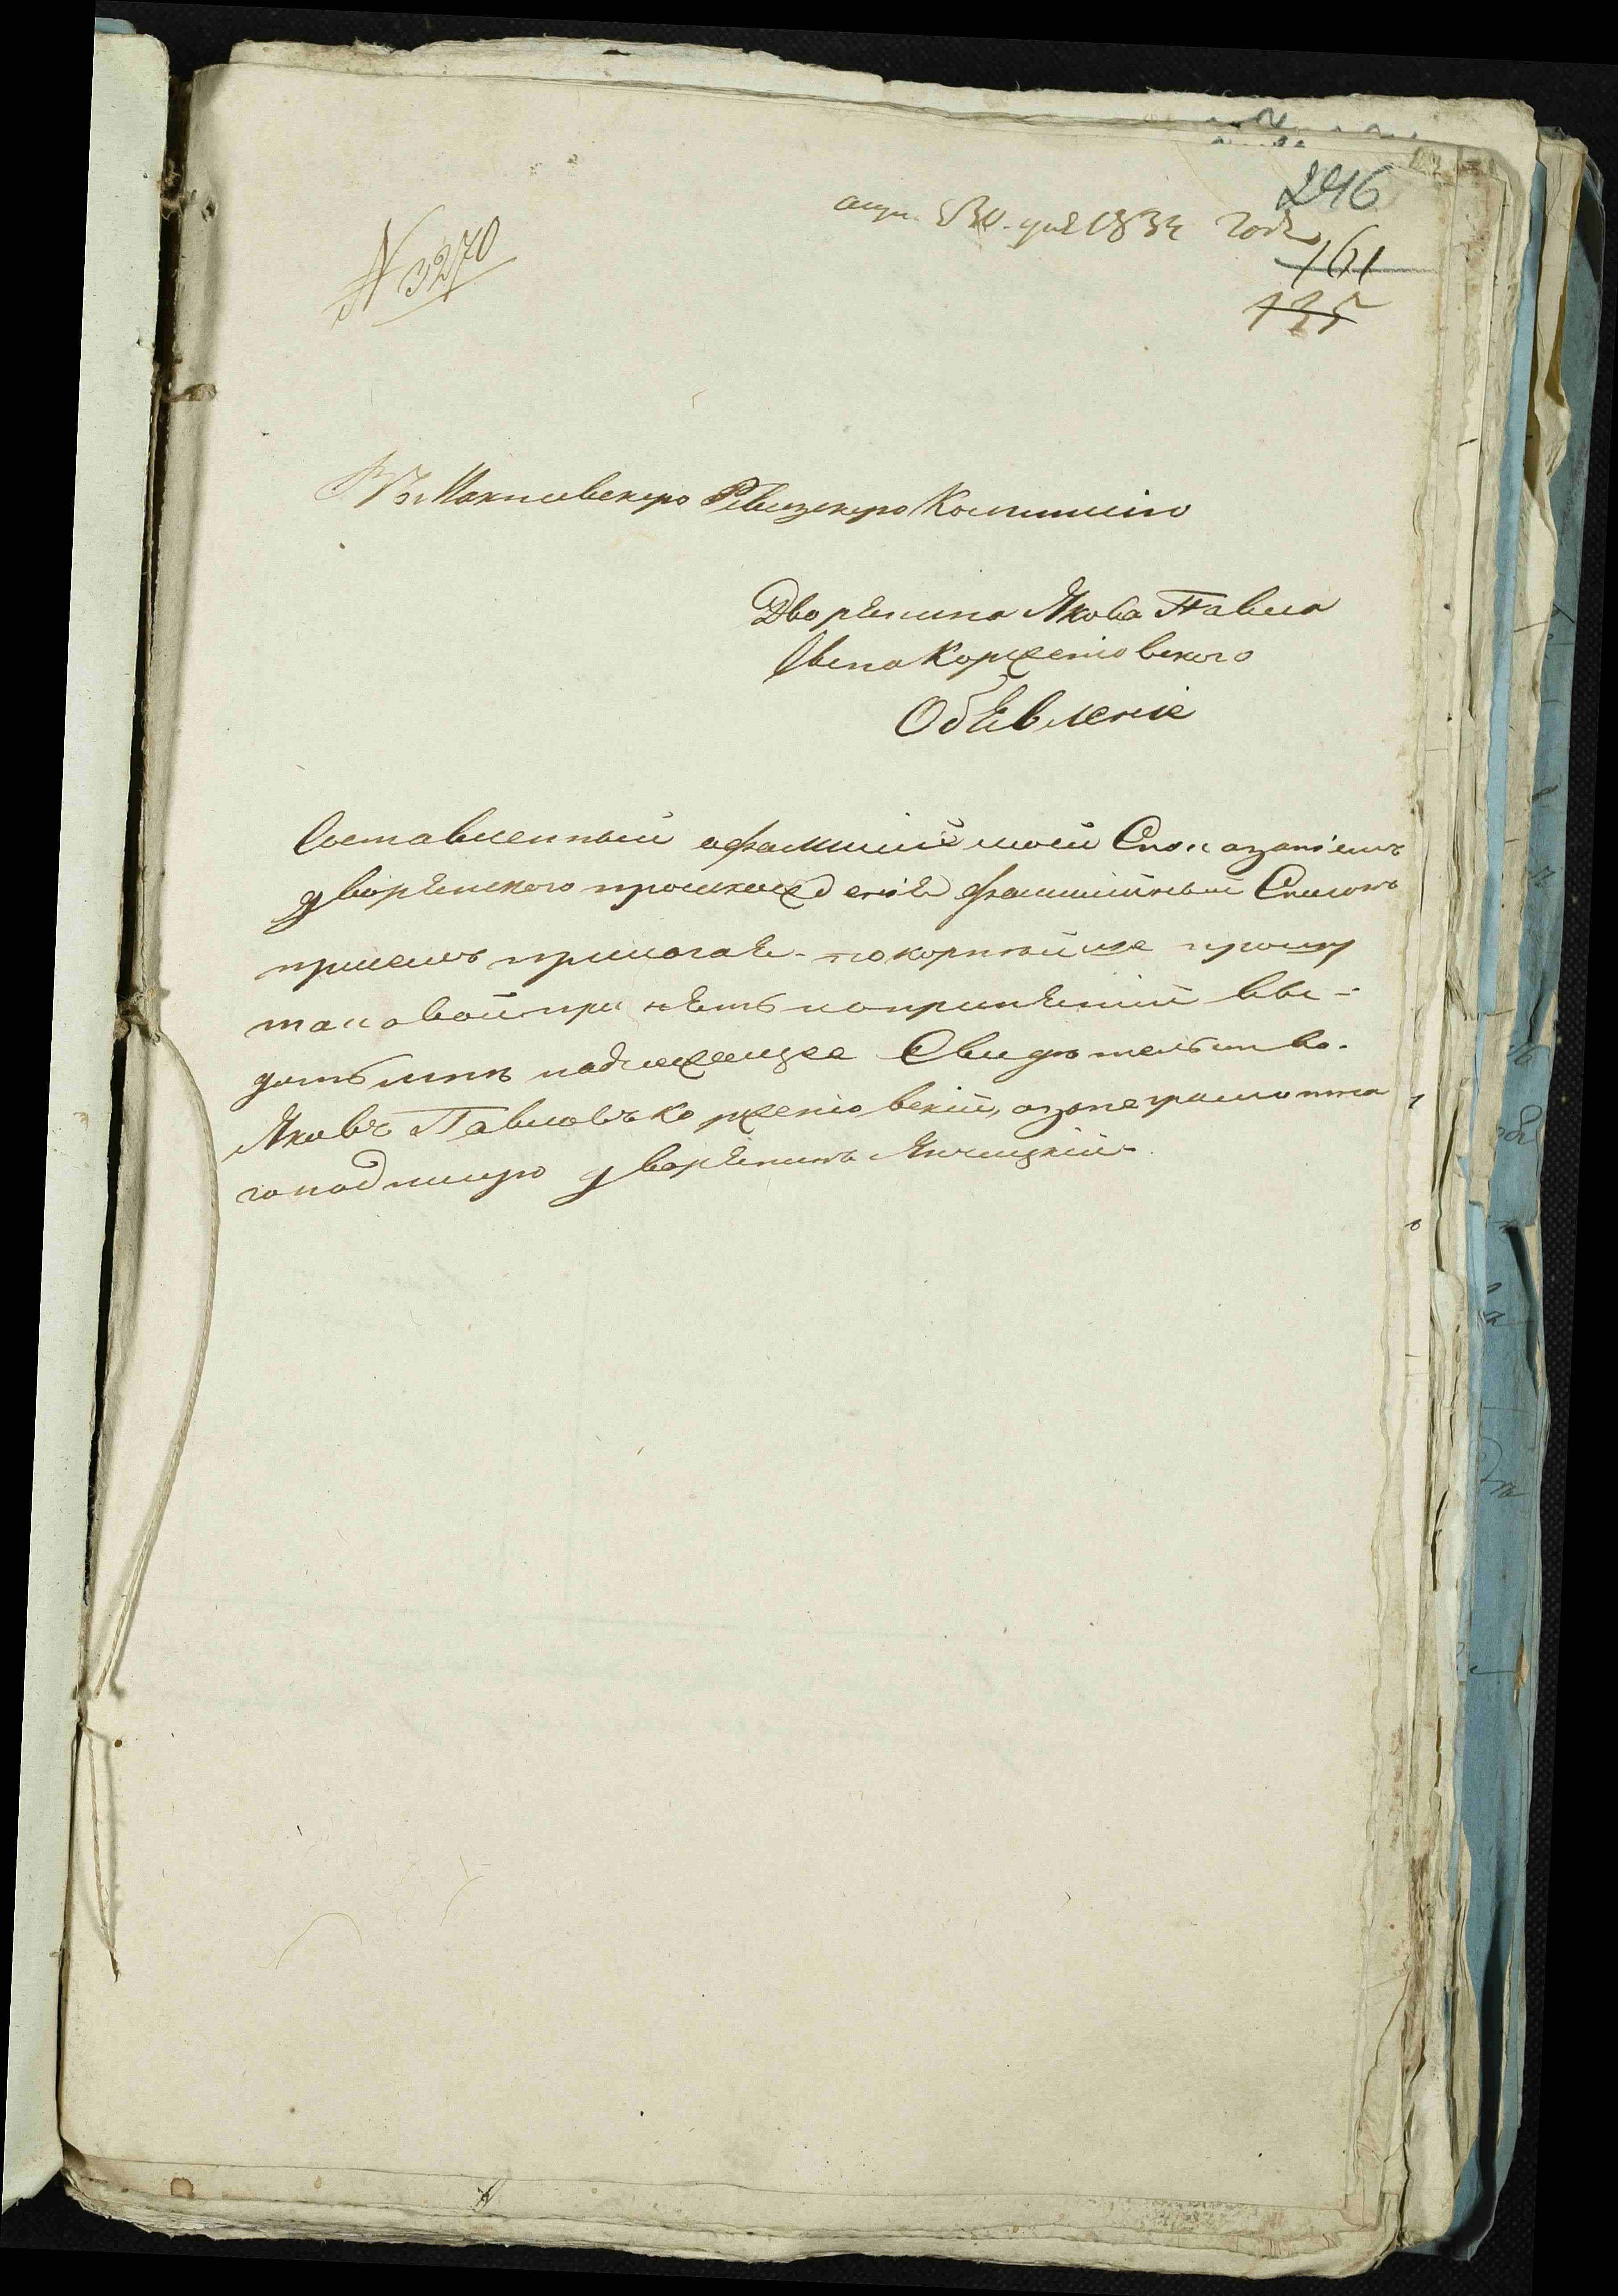 246
№ 3270
30. дня 1834 года
161
135
Въ Ревизскую Коммисію
Дворянина Якова Павло
Сына Корженіовского
Объявленіе
Составленный о фамиліи моей Споказаніемъ
дворянского происхожденія фамилійный Списокъ
присемъ прилогая покорнейше прошу
таковой принять и о принятіи вы-
дать мнѣ надлежащее Свидѣтельство.
Яковъ Павловъ Корженіовскій, а за неграмотна
го подпищую дворянинъ